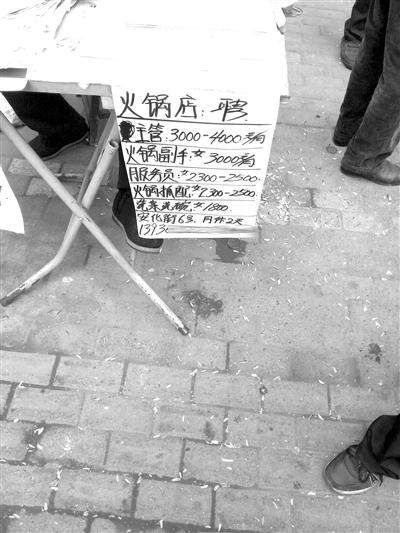 火锅店:聘
主管:3000-4000
火锅副手:女3000
服务员:女2300-2500
火锅 配:女2300-2500
洗菜洗碗:女1800
安化街63 月休2天
1393